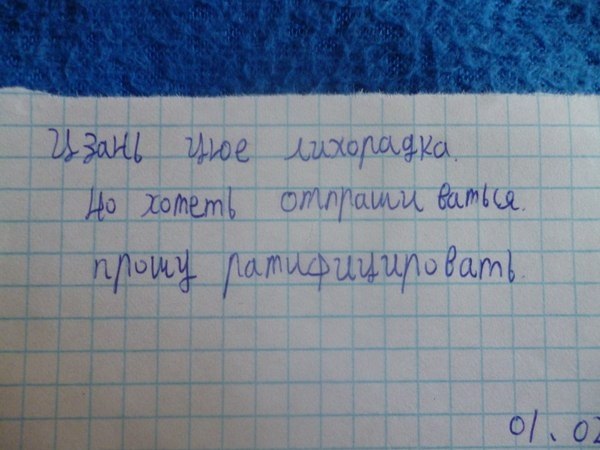 Цзань цюе лихорадка.
но хотеть отпраши ваться.
прошу ратифицировать.
01.02